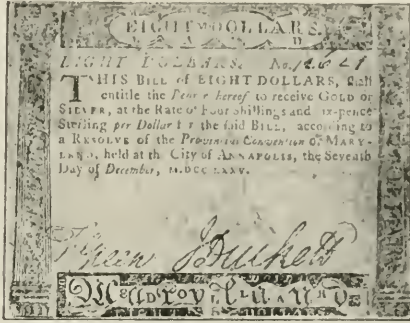 EIGHT DOLLARS.
EIGHT DOLLARS. No.
THIS BILL of EIGHT DOLLARS, shall
entitle the Bearer hereof to receive GOLD or
SILVER, at the Rate of Four Shillings and Six-pence
Sterling per Dollar for the said BILL, according to
a RESOLVE of the Provincial Convention of MARY-
LAND, held at the City of ANNAPOLIS, the Seventh
Day of December, M.DCC LXXV.
Green Duckett